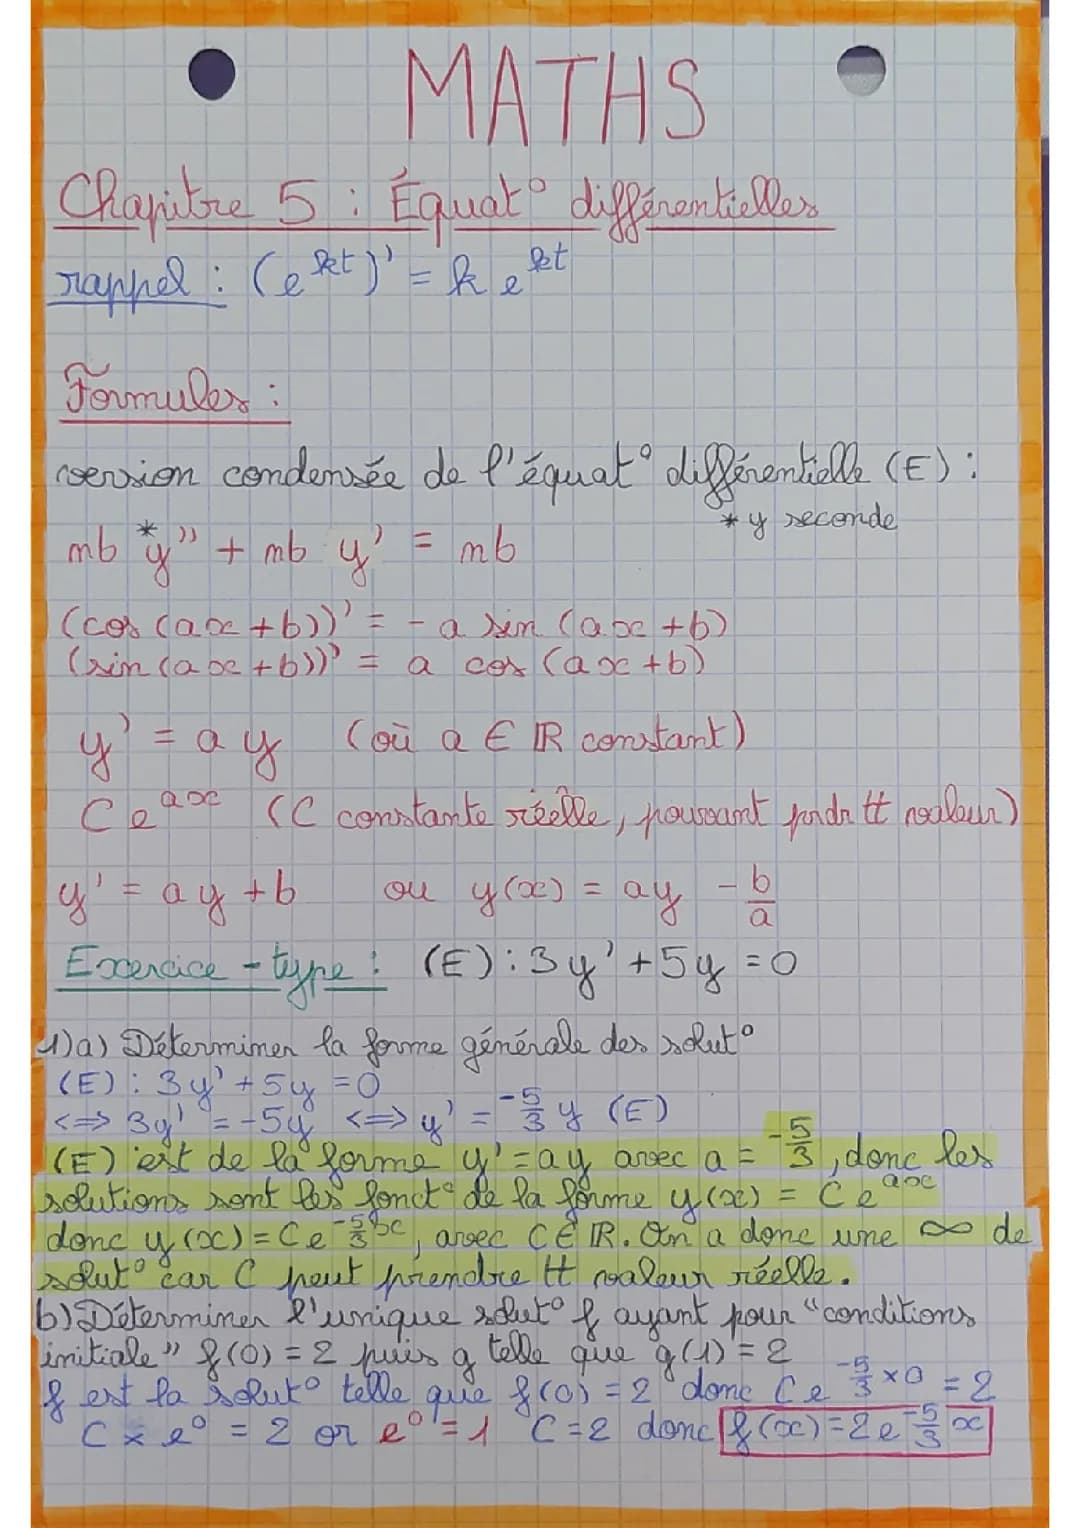 MATHS
Chapitre 5 : Équat° différentielles
rappel : (e^kt)' = k e^kt
Formules :
version condensée de l'équat° différentielle (E) :
* y seconde
mb *y'' + mb y' = mb
(cos (ax+b))' = - a sin (ax+b)
(sin (ax+b))' = a cos (ax+b)
y' = a y (où a ∈ ℝ constant)
C e^ax (C constante réelle, pouvant prdr tt valeur)
y' = ay + b ou y(x) = ay - b/a
Exercice - type : (E) : 3y' + 5y = 0
1)a) Déterminer la forme générale des solut°
(E) : 3y' + 5y = 0
<=> 3y' = -5y <=> y' = -5/3 y (E)
(E) est de la forme y' = ay avec a = -5/3, donc les
solutions sont les fonct° de la forme y(x) = C e^ax
donc y(x) = C e^-5/3x, avec C ∈ ℝ. On a donc une ∞ de
solut° car C peut prendre tt valeur réelle.
b) Déterminer l'unique solut° f ayant pour "conditions
initiale" f(0) = 2 puis g telle que g(1) = 2
f est la solut° telle que f(0) = 2 donc C e^-5/3 x 0 = 2
C x e^0 = 2 or e^0 = 1 C = 2 donc f(x) = 2 e^-5/3 x